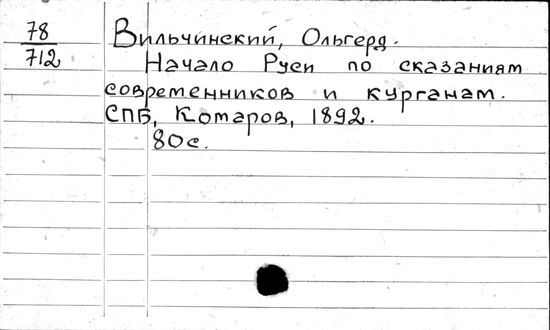 78
712
Вильчинский, Ольгерд.
Начало Руси по сказаниям
современников и курганам.
СПБ, Комаров, 1892.
80с.